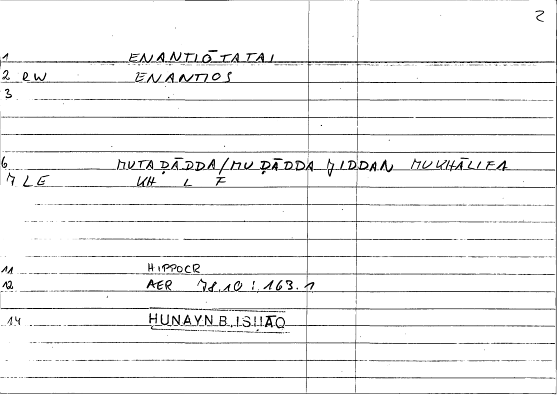 2
1 ENANTIŌTATAI
2 RW ENANTIOS
3
6 MUTAḌĀDDA/MUḌĀDDA JIDDAN MUKHĀLIFA
7 LE KH L F
11 HIPPOCR
12 AER 78.10 : 163.1
14 ḤUNAYN B. ISḤĀQ